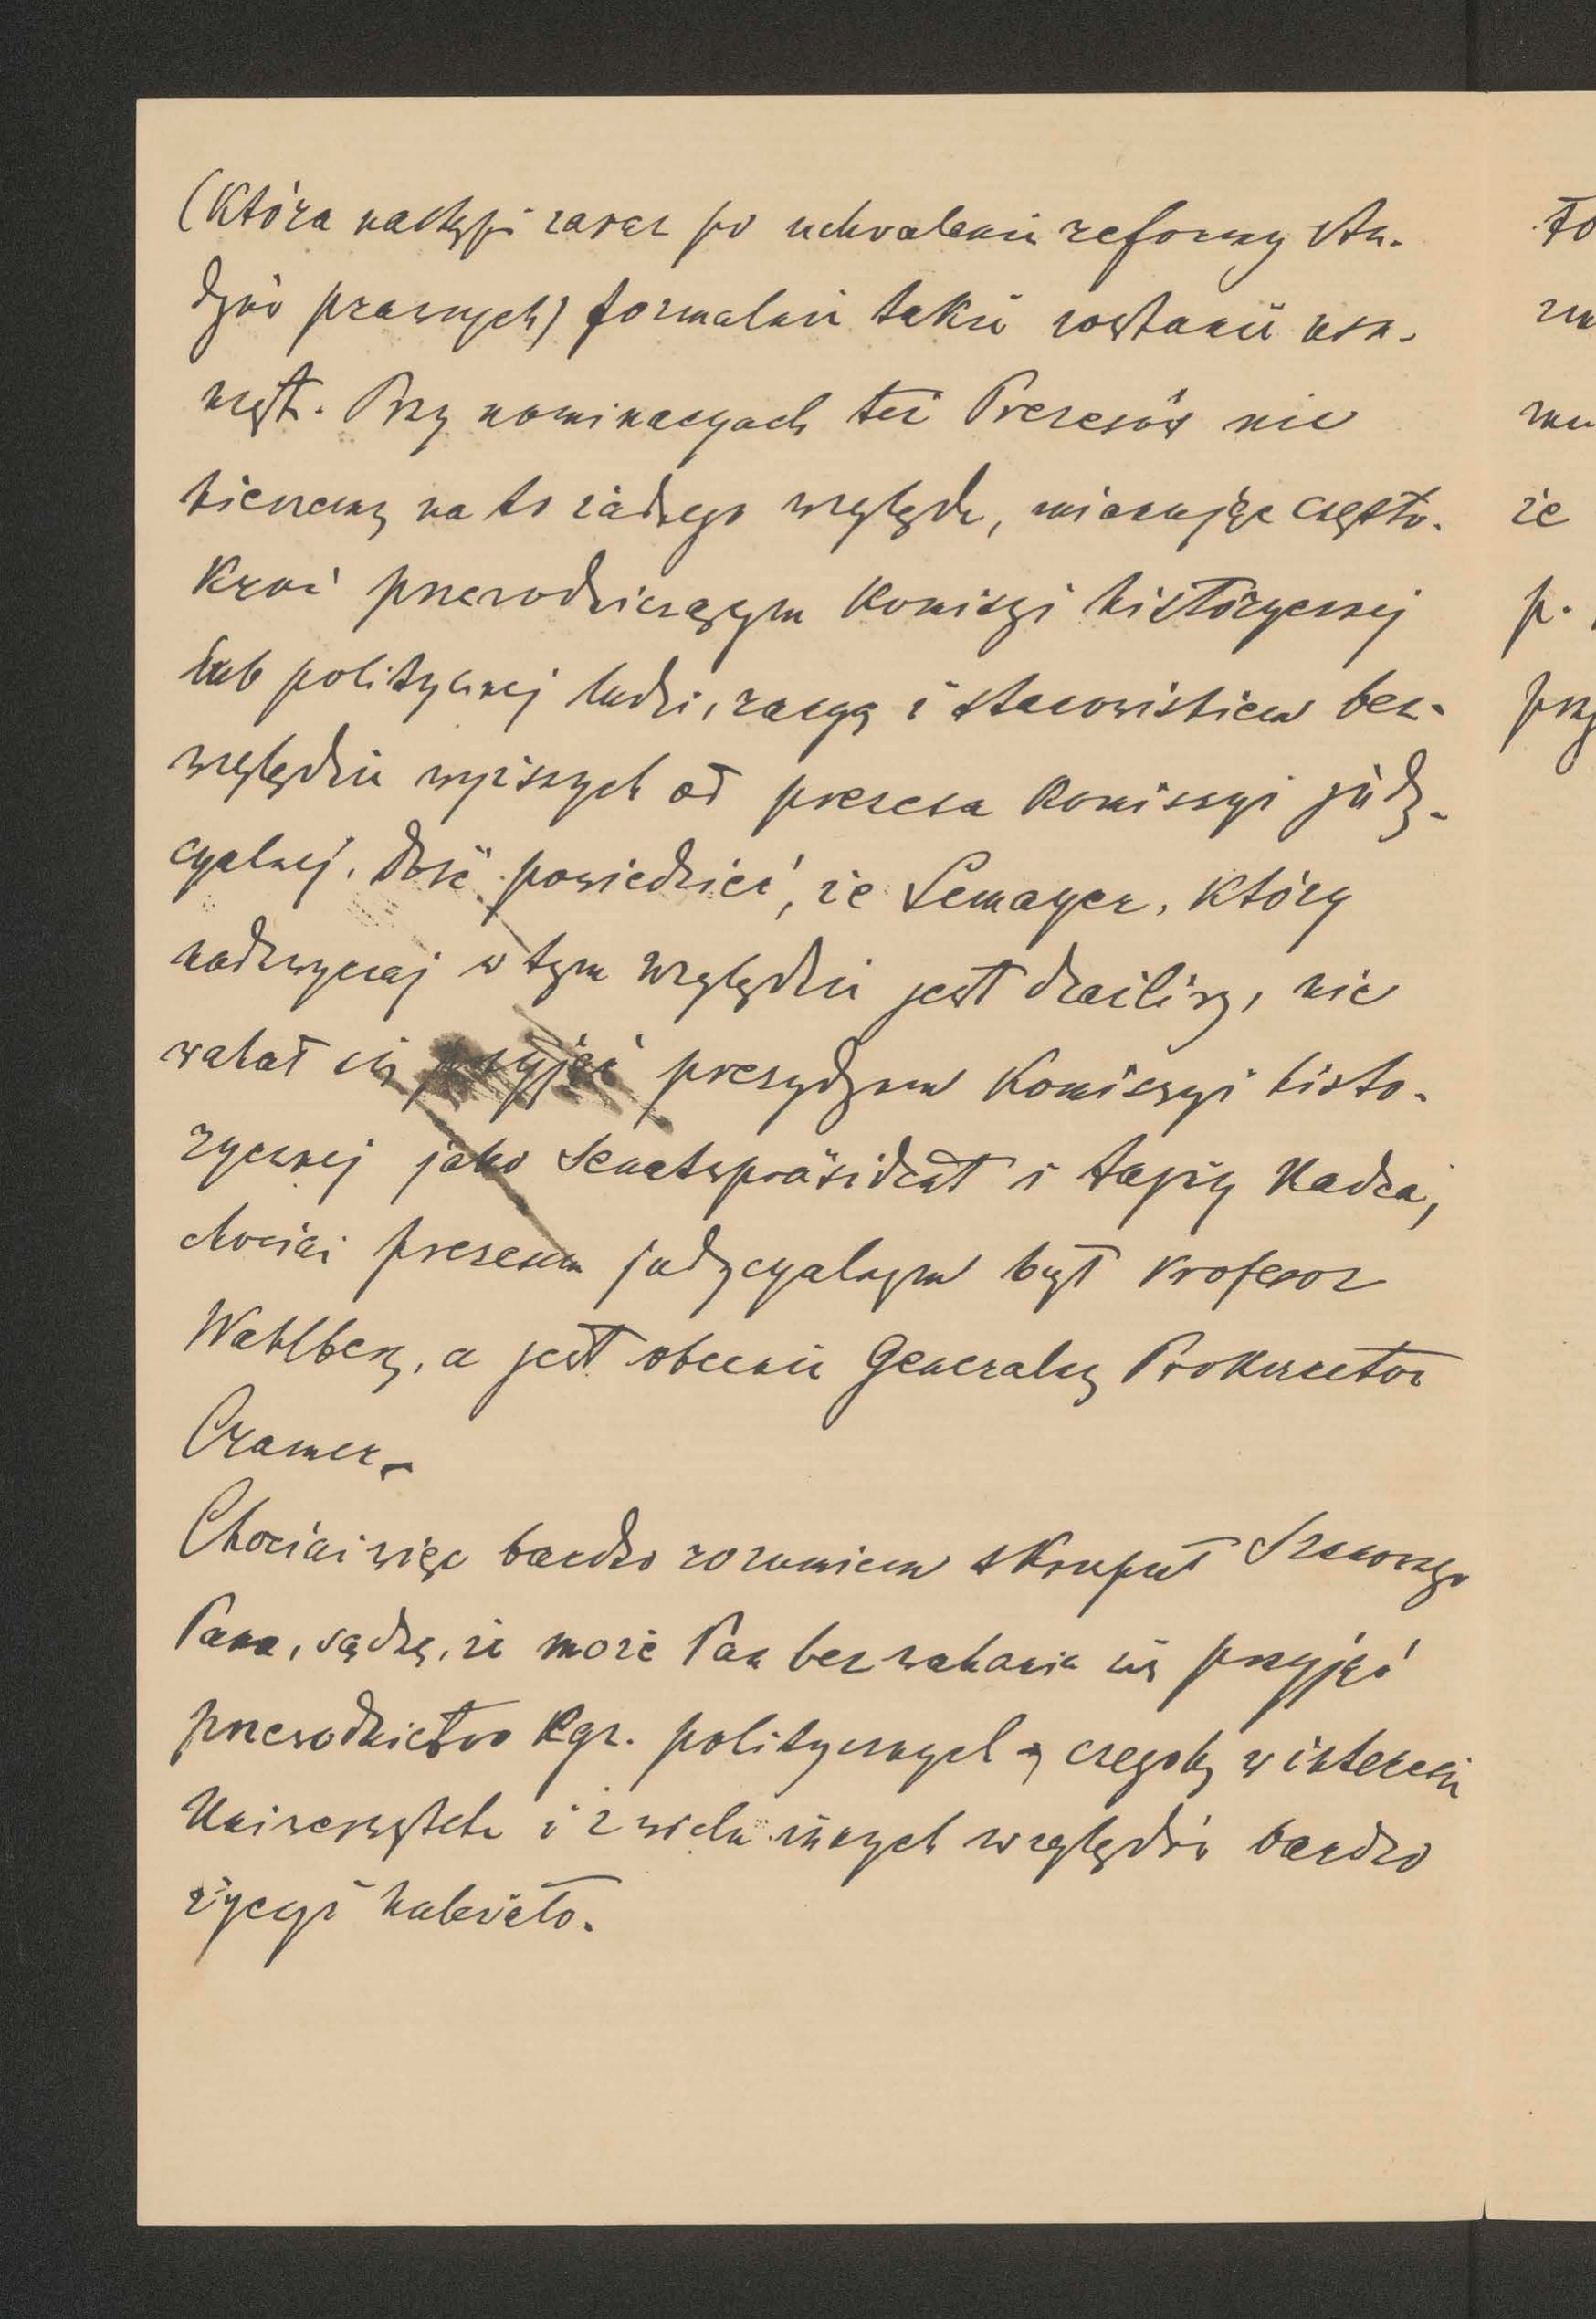 (która nastąpi zaraz po uchwaleniu reformy stu-
dyów prawnych) formalnie także zostanie usu-
nięta. Przy nominacyach też Prezesów nie
bierzemy na to żadnego względu, mianując często-
kroć przewodniczącym Komisyi historycznej
lub politycznej ludzi, rangą i stanowiskiem bez-
względnie wyższych od prezesa Komissyi judy-
cyalnej. Dość powiedzieć, że Lemayer, który
nadzwyczaj w tym względzie jest drażliwy, nie
wahał się przyjąć prezydyum Komissyi histo-
rycznej jako Senatspräsident i tajny Radca,
chociaż prezesem judycyalnym był Profesor
Wahlberg, a jest obecnie Generalny Prokurator
Cramer.
Chociaż więc bardzo rozumiem skrupuł Szanownego
Pana, sądzę, że może Pan bez wahania się przyjąć
przewodnictwo Egz. politycznych, czegoby w interesie
Uniwersytetu i z wielu innych względów bardzo
życzyć należało.
to
że
p.